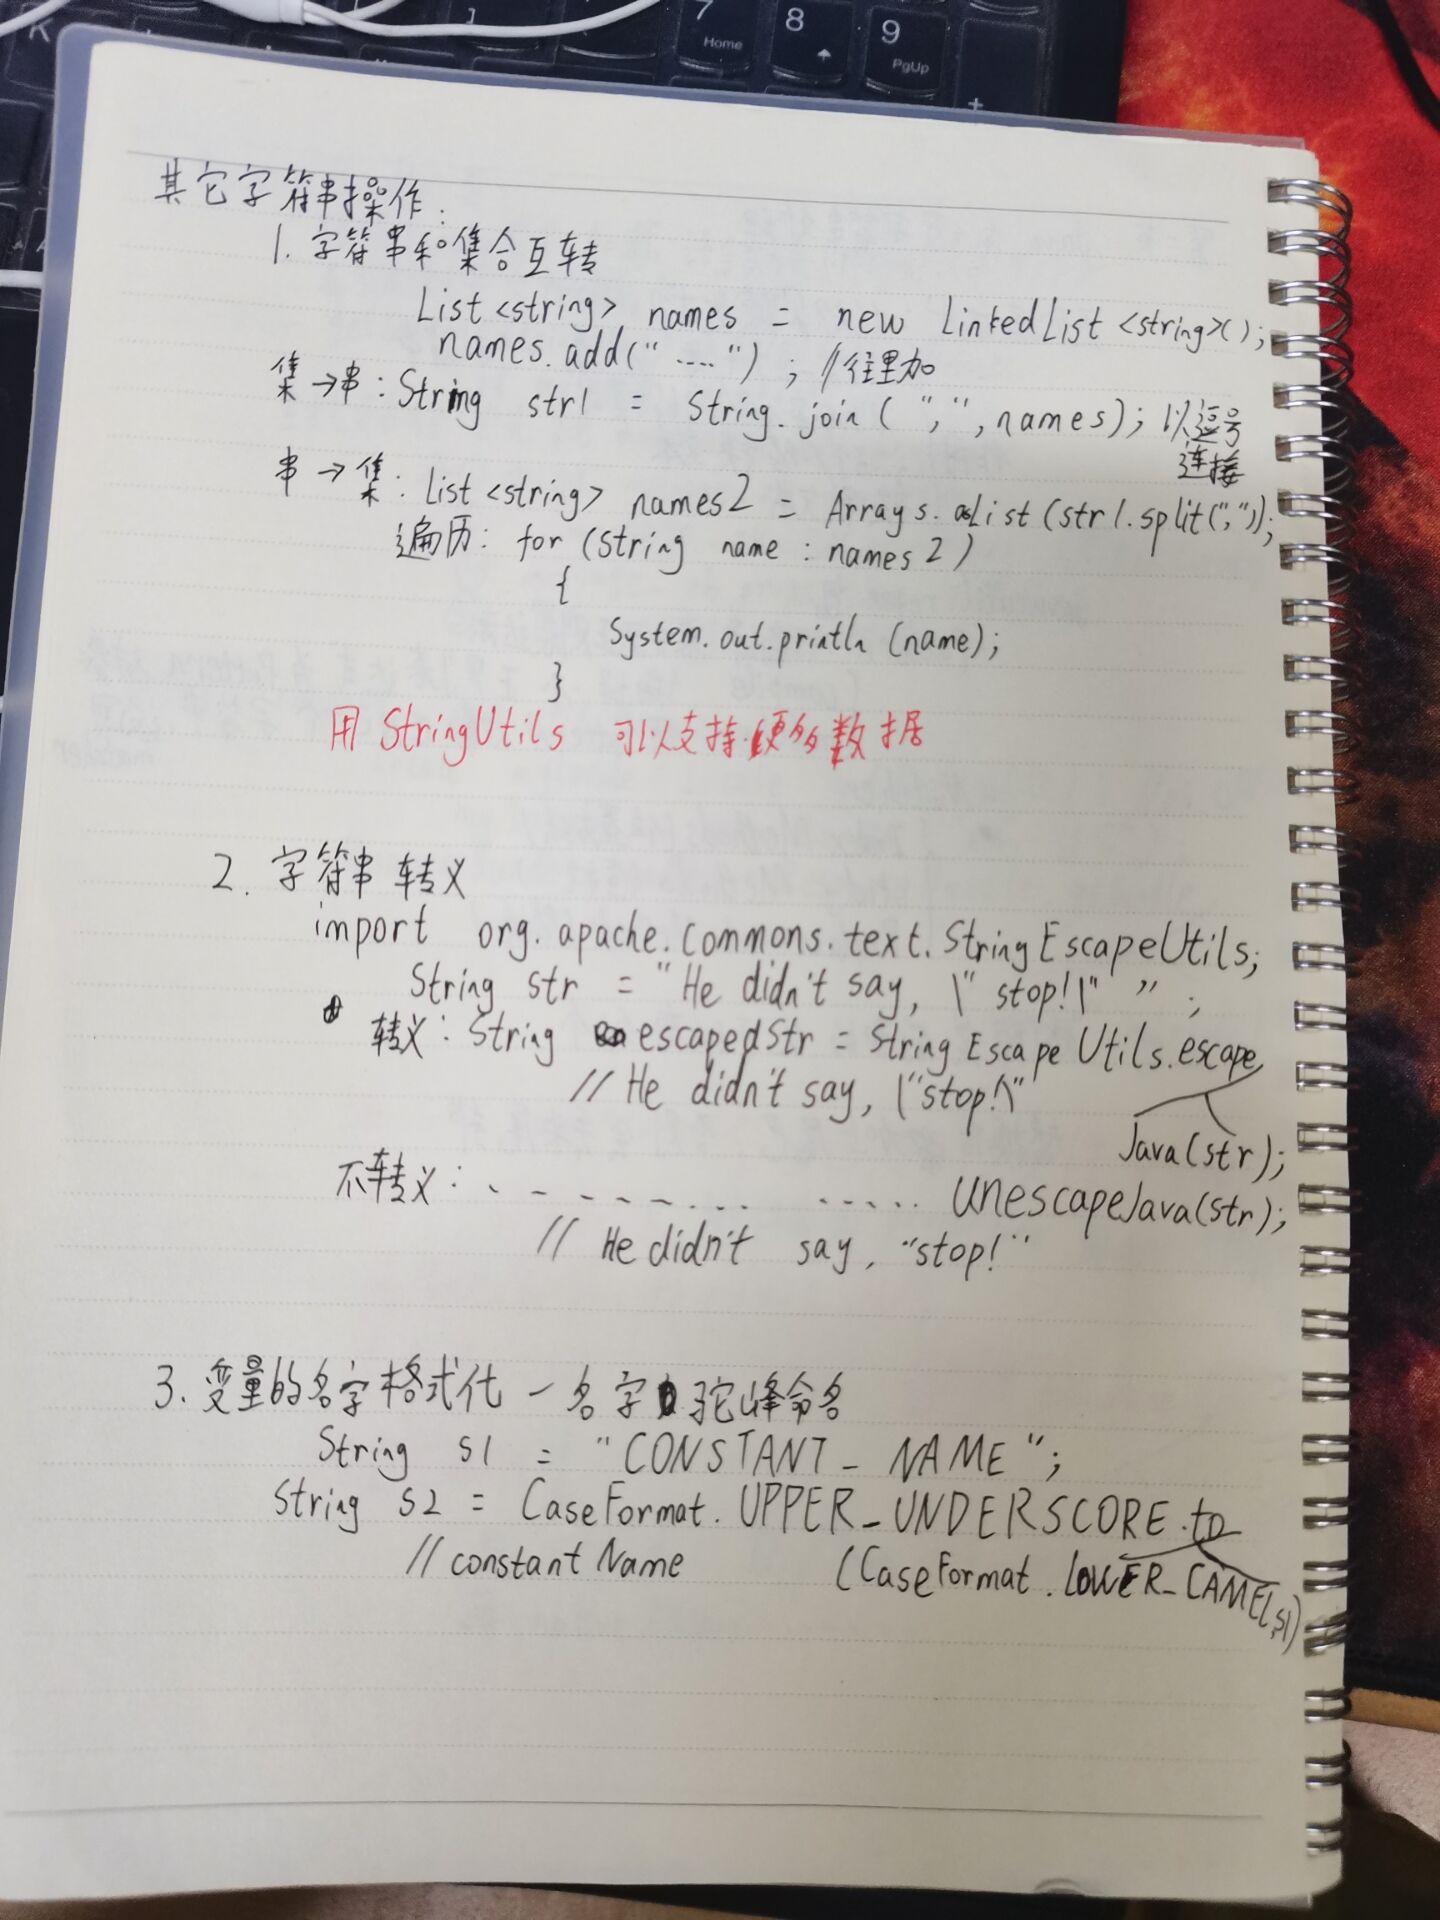 7
Home
8
9
PgUp
K
+
其它字符串操作:
1. 字符串和集合互转
List<string> names = new linkedlist<string>();
names.add("....") ; //往里加
集→串: String str1 = String.join(",",names); 以逗号
连接
串→集: List<string> names2 = Arrays.asList(str1.split(","));
遍历: for (String name : names2)
{
System.out.println(name);
}
用 StringUtils 可以支持更多数据
2. 字符串转义
import org.apache.commons.text.StringEscapeUtils;
String str = "He didn't say, \"stop!\"";
转义: String escapedStr = StringEscapeUtils.escape
Java(str);
// He didn't say, \"stop!\"
不转义: - - - - - - . . . ..... unescapeJava(str);
// He didn't say, "stop!"
3. 变量的名字格式化 - 名字 驼峰命名
String s1 = "CONSTANT_NAME";
String s2 = CaseFormat.UPPER_UNDERSCORE.to
(CaseFormat.LOWER_CAMEL,s1)
// constantName